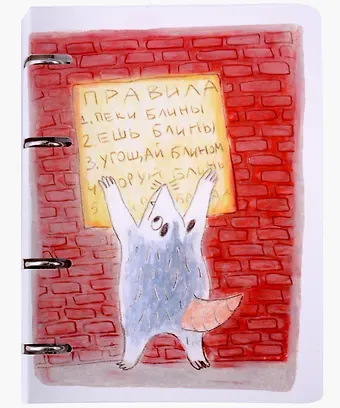 ПРАВИЛА
1. ПЕКИ БЛИНЫ
2. ЕШЬ БЛИНЫ
3. УГОЩАЙ БЛИНОМ
4
5